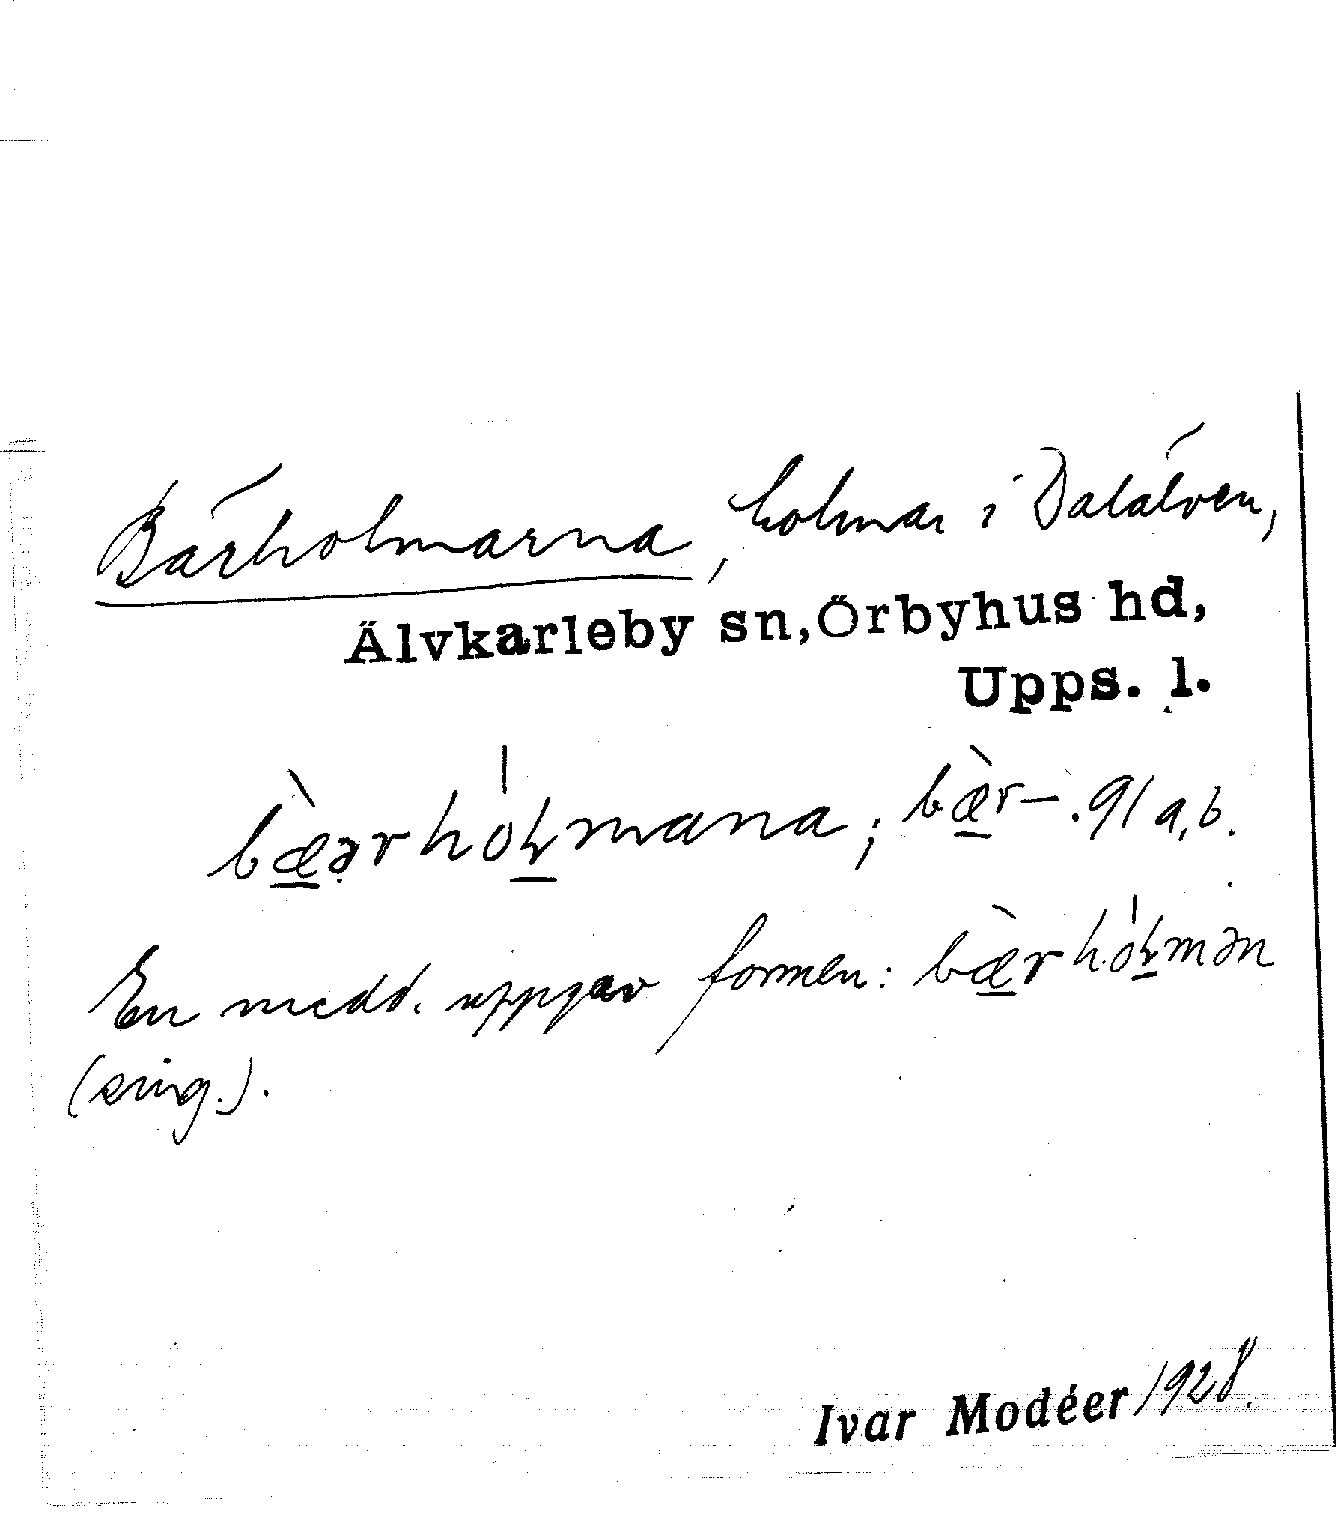 Bärholmarna, holmar i Dalälven,
Älvkarleby sn, Örbyhus hd,
Upps. l.
bæ̲̀ə̣rhoɫ̲mana; bæ̲̀r–. 91 a, b.
En medd. uppgav formen: bæ̲̀rhoɫ̲mən
(sing.).
Ivar Modéer 1928.